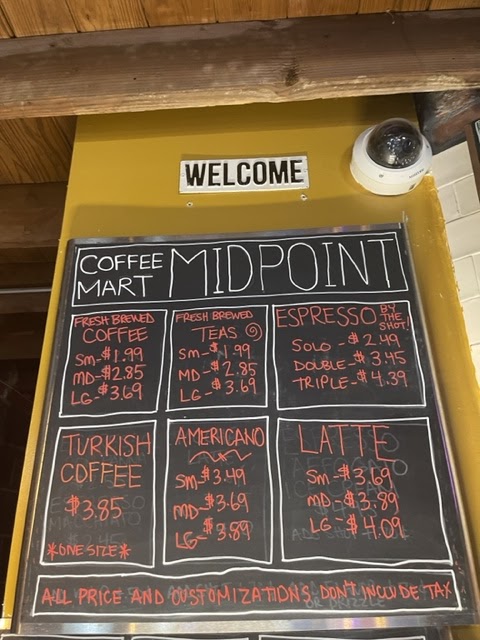 WELCOME
COFFEE MART
MIDPOINT
FRESH BREWED
COFFEE
SM-$1.99
MD-$2.85
LG-$3.69
FRESH BREWED
TEAS
SM-$1.99
MD-$2.85
LG-$3.69
ESPRESSO BY THE SHOT!
SOLO-$2.49
DOUBLE-$3.45
TRIPLE-$4.39
TURKISH
COFFEE
$3.85
*ONE SIZE*
AMERICANO
SM-$3.49
MD-$3.69
LG-$3.89
LATTE
SM-$3.69
MD-$3.89
LG-$4.09
ALL PRICE AND CUSTOMIZATIONS DON'T INCLUDE TAX